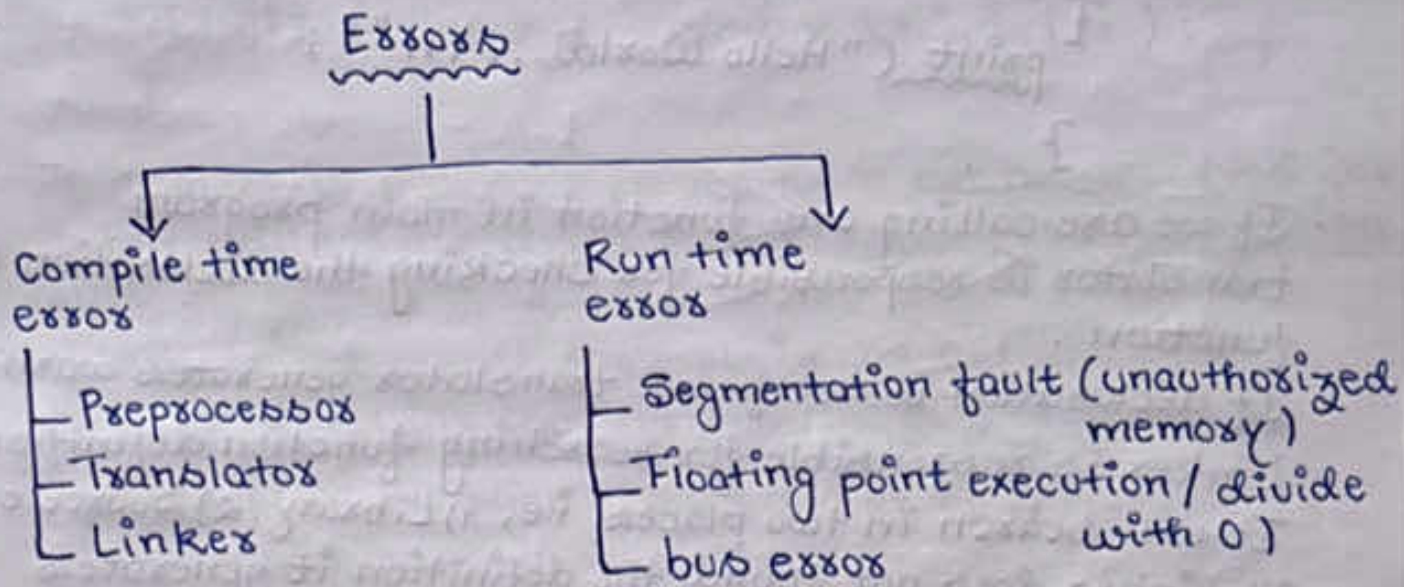 Errors
Compile time
error
Preprocessor
Translator
Linker
Run time
error
Segmentation fault (unauthorized
memory)
Floating point execution / divide
with 0)
bus error